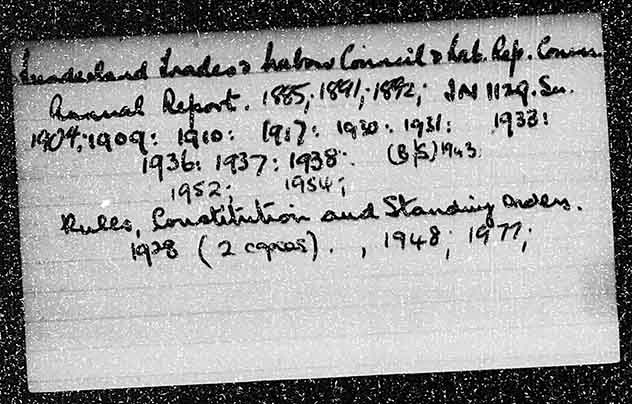 Sunderland Trades & Labour Council & Lab. Rep. Comm.
Annual Report. 1885; 1891; 1892; JN 1129. Su.
1904; 1909: 1910: 1917: 1930: 1931: 1933:
1936: 1937: 1938: (B/S) 1943
1952; 1954;
Rules, Constitution and Standing Orders.
1928 (2 copies). , 1948; 1977;